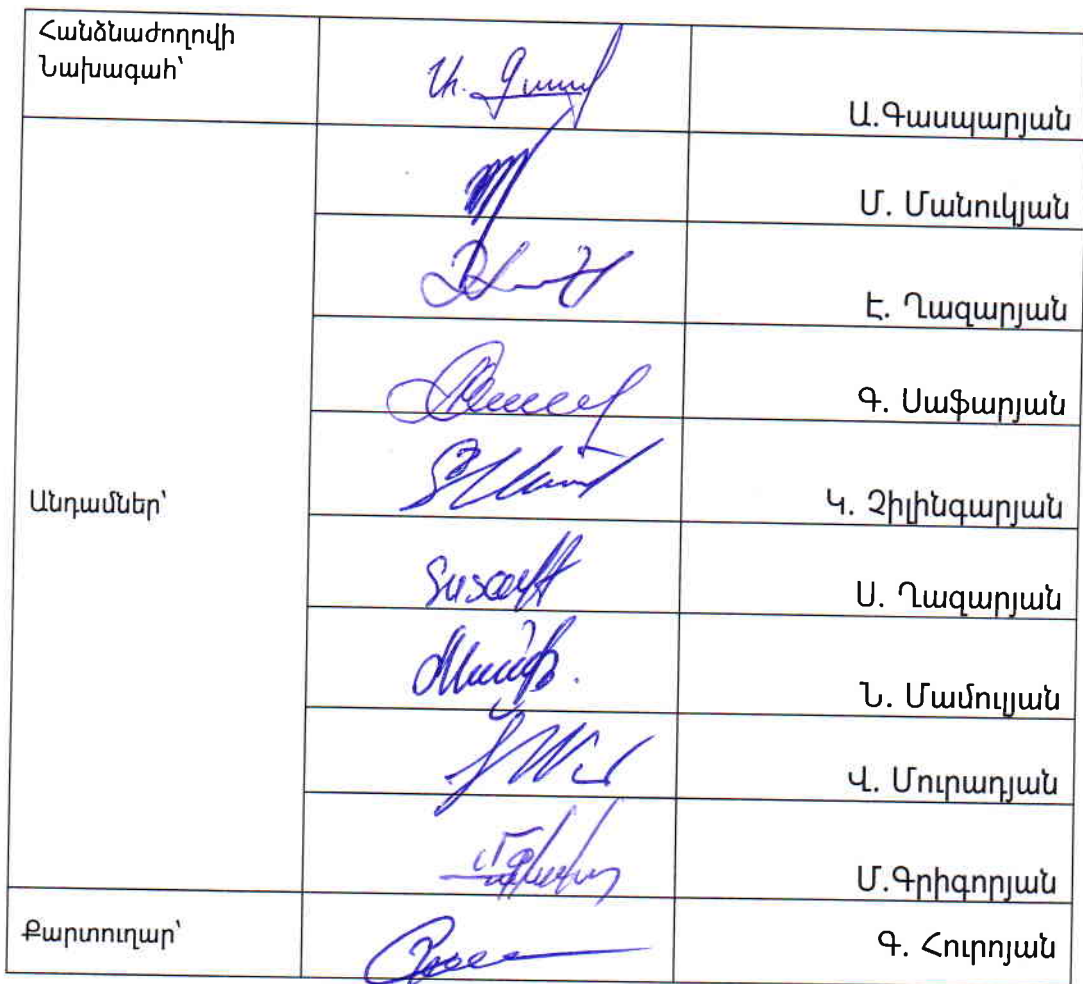 Հանձնաժողովի
Նախագահ՝
Ա.Գասպարյան
Մ. Մանուկյան
Է. Ղազարյան
Գ. Սաֆարյան
Անդամներ՝
Կ. Չիլինգարյան
Ս. Ղազարյան
Ն. Մամուլյան
Վ. Մուրադյան
Մ.Գրիգորյան
Քարտուղար՝
Գ. Հուրոյան